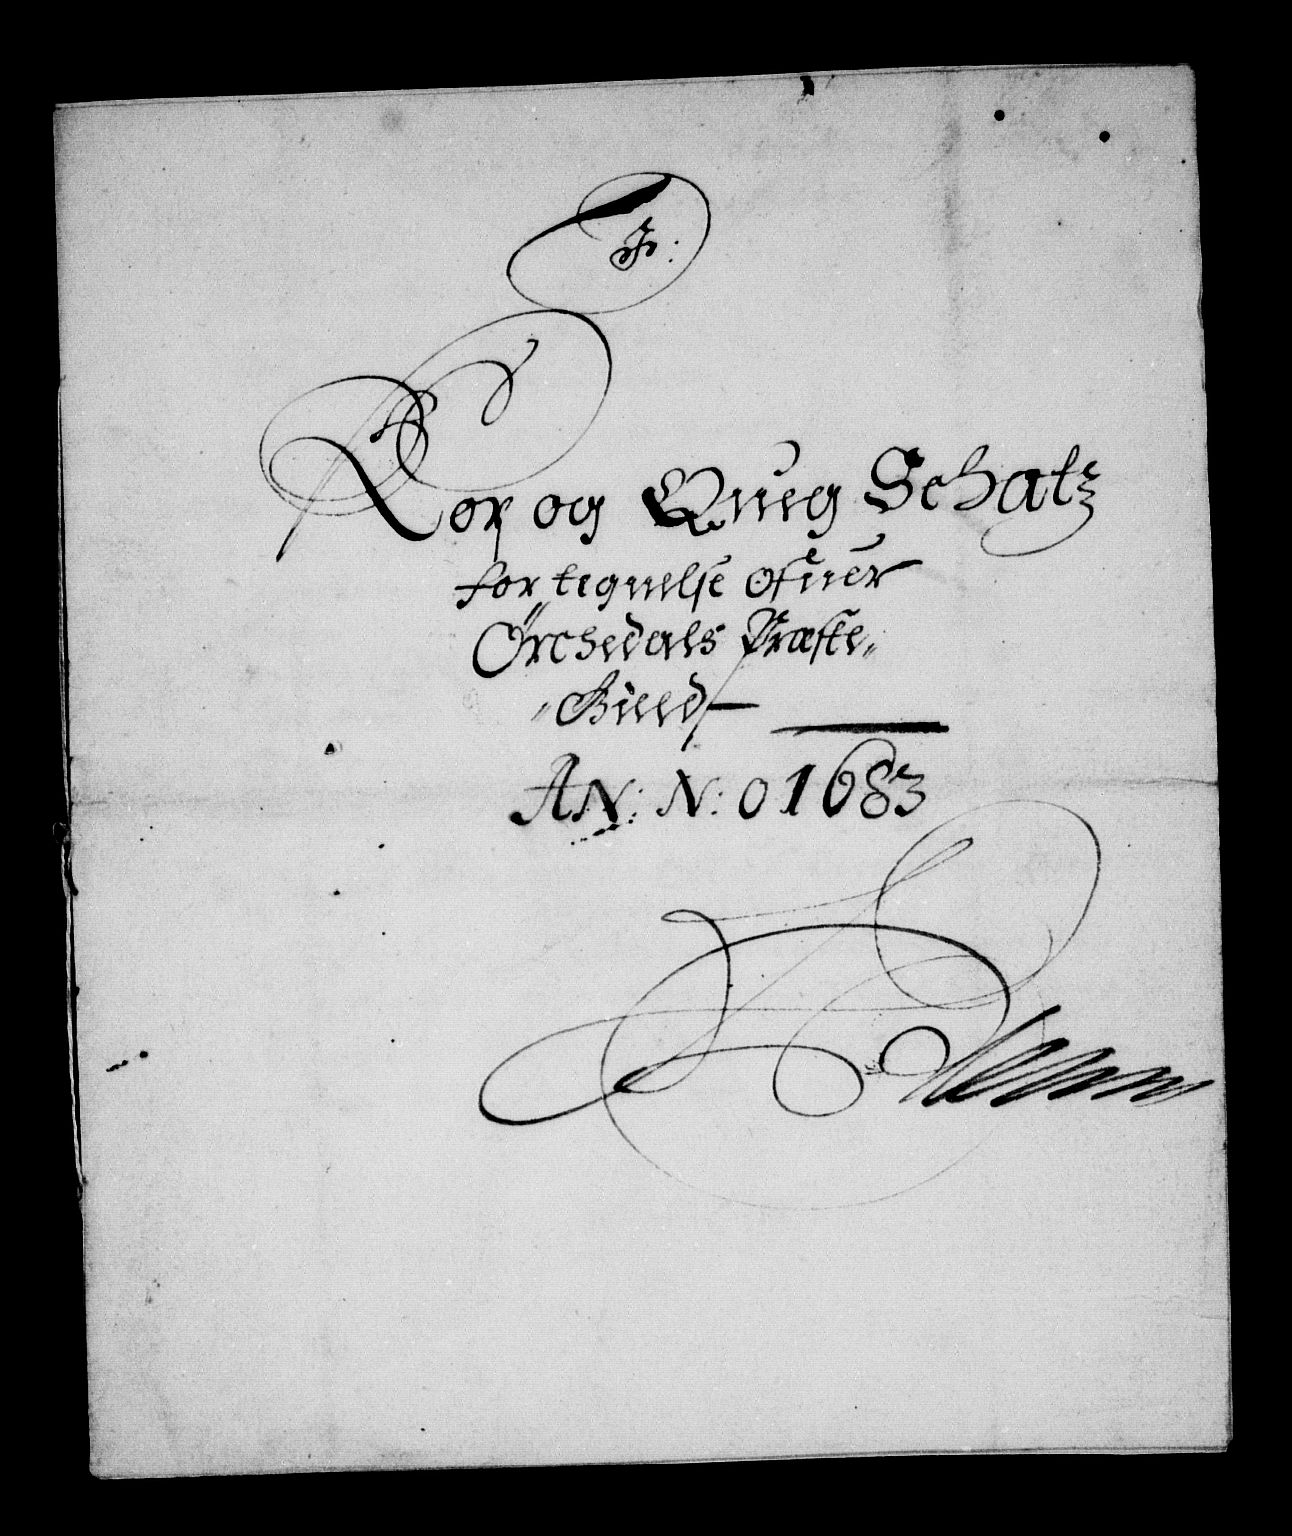 Kor og Quæg Schatz
fortegnelse ofuer
Örchedals Præste„
„Gield
AN: N: O 1683